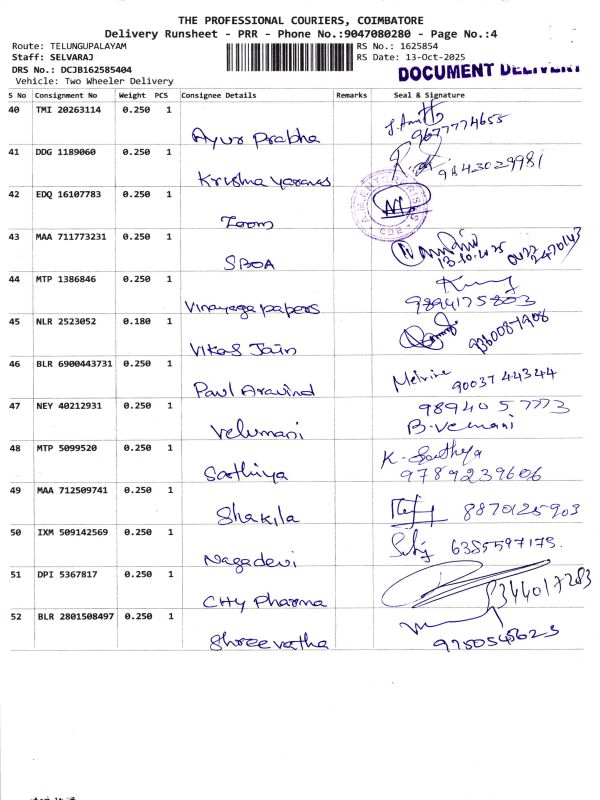 THE PROFESSIONAL COURIERS, COIMBATORE
Delivery Runsheet - PRR - Phone No.:9047080280 - Page No.:4
Route: TELUNGUPALAYAM
Staff: SELVARAJ
DRS No.: DCJB162585404
Vehicle: Two Wheeler Delivery
RS No.: 1625854
RS Date: 13-Oct-2025
DOCUMENT DELIVERY
S No Consignment No Weight PCS Consignee Details Remarks Seal & Signature
40 TMI 20263114 0.250 1 Ayur Prabha 9677774655
41 DDG 1189060 0.250 1 Krishna 9843029981
42 EDQ 16107783 0.250 1 Zoom
43 MAA 711773231 0.250 1 SBOA 13.10.2025 0422 2470143
44 MTP 1386846 0.250 1 Vinayaga papers 9894175803
45 NLR 2523052 0.180 1 Vikas Jain
46 BLR 6900443731 0.250 1 Paul Aravind 90037 44344
47 NEY 40212931 0.250 1 Velumani 989405 7773
B. Velmani
48 MTP 5099520 0.250 1 Sathiya K. Sathya
9789239606
49 MAA 712509741 0.250 1 Shakila 8870125903
50 IXM 509142569 0.250 1 Nagadevi 6385597175.
51 DPI 5367817 0.250 1 CHY Pharma 8344017283
52 BLR 2801508497 0.250 1 Shreevatha 9750545623